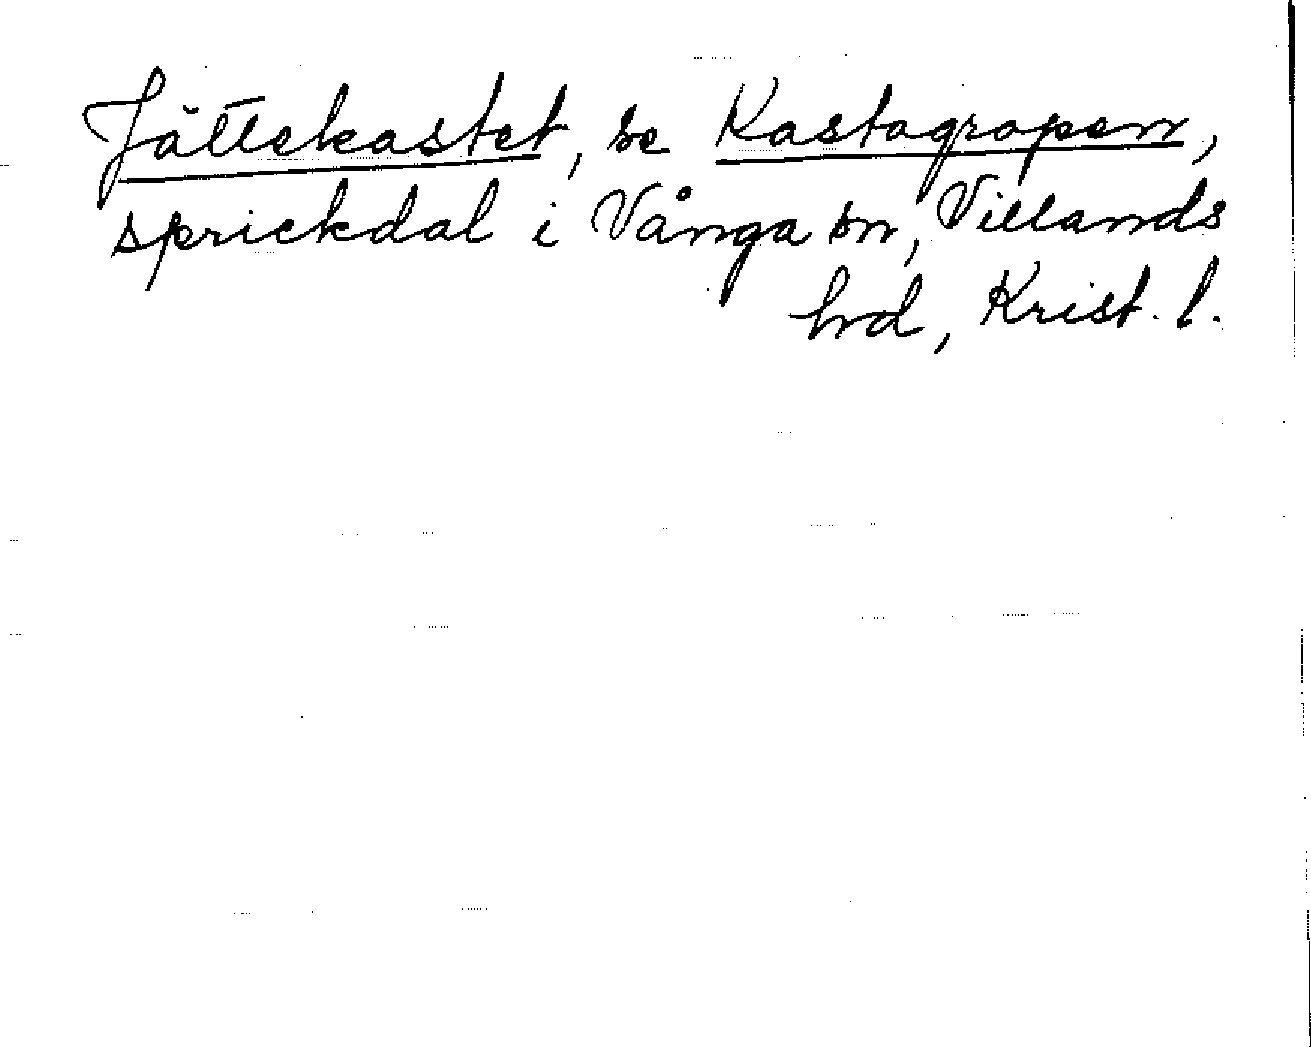 Jättekastet, se Kastagropen,
sprickdal i Vånga sn, Villands
hd, Krist. l.